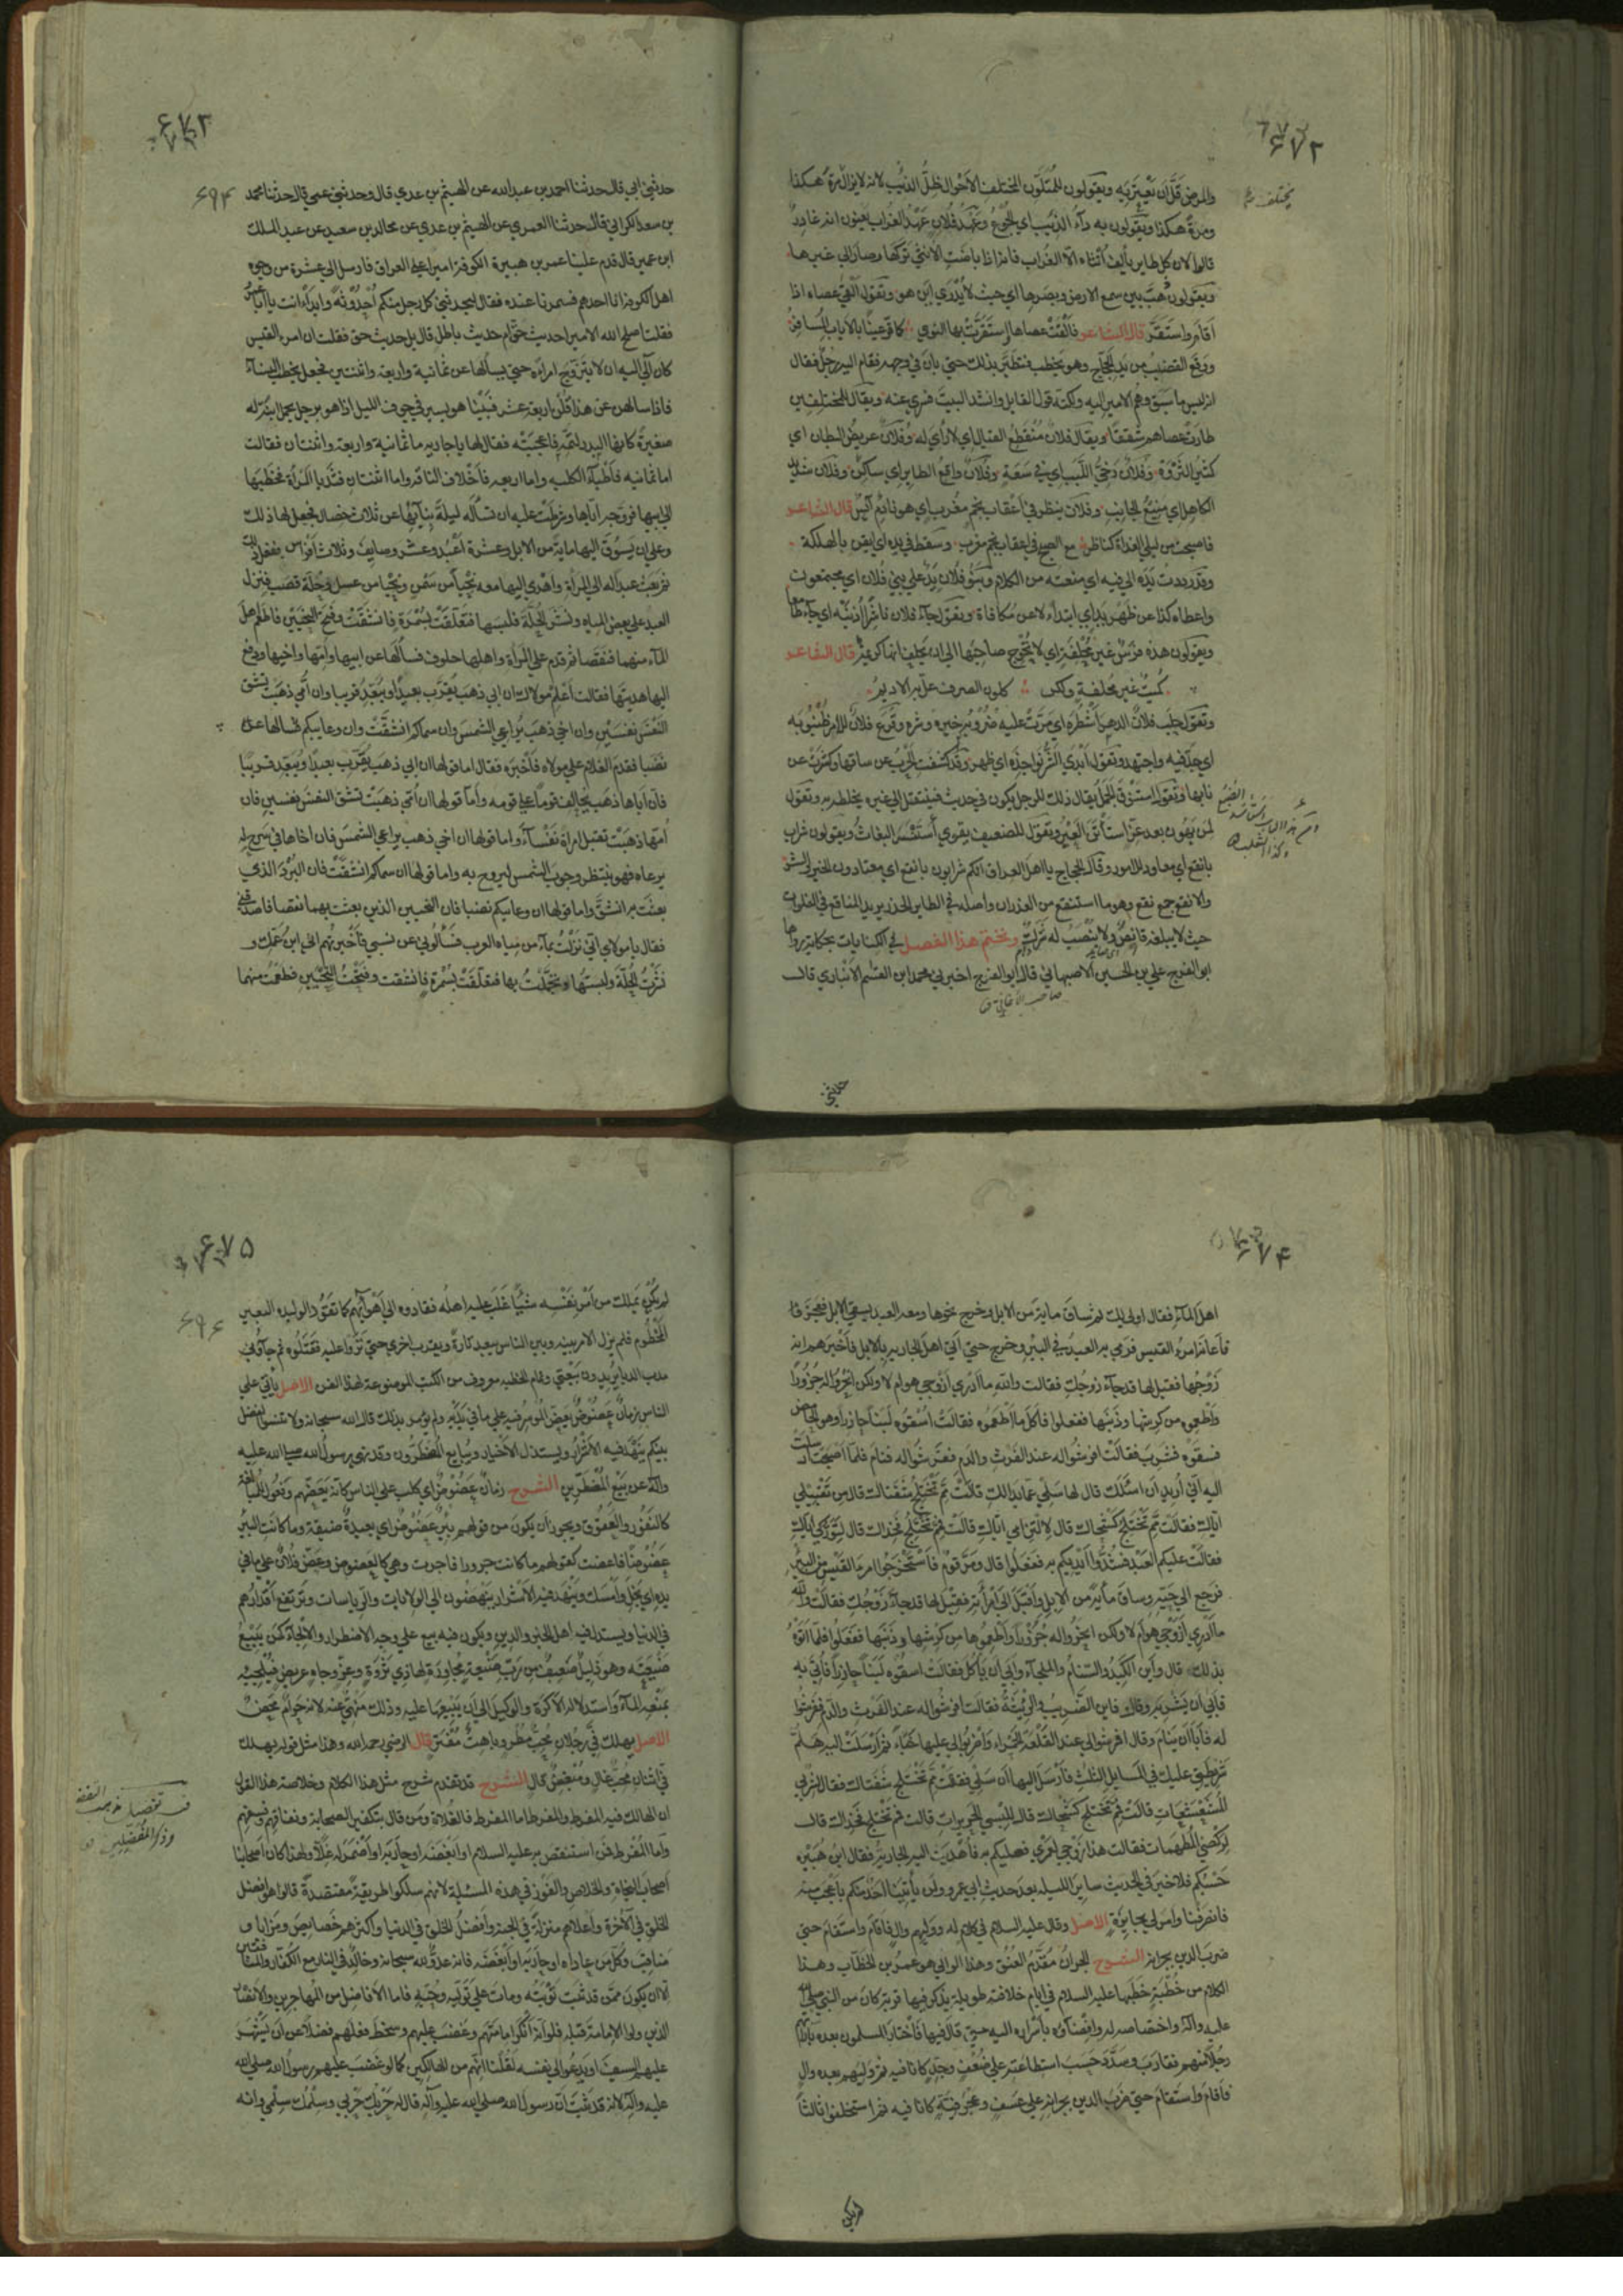 ۶۷۲
والمرض قلَّ ان يعتريه ويقولون للمتلون المختلف الاحوال ظلّ الذئب لانه لايزال مرةً هكذا
ومرة هكذا ويقولون به داء الذئب اي الجوع وعهد فلان عهد الغراب يعنون انه غادر
قالوا لان كل طاير يألف انثاه الا الغراب فانه اذا باضت الانثى تركها وصار الى غيرها
ويقولون ذهب بين سمع الارض وبصرها اي حيث لا يدري اين هو وتقول القى عصاه اذا
اقام واستقر قال الشاعر فألقت عصاها واستقرت بها النوى كما قرّ عينا بالاياب المسافر
ووقع القضيب من يد الحجاج وهو يخطب فتطير بذلك حتى بان في وجهه فقام اليه رجل فقال
انه ليس ما سبق وهم الامير اليه ولكنه قول القايل وانشد البيت فسري عنه ويقال للمختلفين
طارت عصاهم شققا ويقال فلان منقطع القبال اي لا رأي له وفلان عريض البطان اي
كثير الثروة وفلان رخي اللبب اي في سعة وفلان واقع الطاير اي ساكن وفلان شديد
الكاهل اي منيع الجانب وفلان ينظر في اعقاب نجم مغرب اي هو نادم آيس قال الشاعر
فاصبحت من ليلى الغداة كناظر مع الصبح في اعقاب نجم مغرب وسقط في يده اي ايقن بالهلكة
وقد رددت يده الى فيه اي منعته من الكلام وبنو فلان يد على بني فلان اي مجتمعون
واعطاه كذا عن ظهر يد اي ابتداء لا عن مكافاة وتقول جاء فلان ناشرا اذنيه اي جاء طامعا
ويقولون هذه فرس غير محلفة اي لا تحوج صاحبها الى ان يحلف انها كريمة قال الشاعر
كميت غير محلفة ولكن كلون الصرف عل به الاديم
وتقول حلب فلان الدهر اشطره اي مرت عليه ضروبه خيره وشره وقرع فلان للامر ظنبوبه
اي جد فيه واجتهد وتقول ابدى الشر نواجذه اي ظهر وقد كشفت الحرب عن ساقها وكشرت عن
نابها وتقول استنوق الجمل يقال ذلك للرجل يكون في حديث فينتقل الى غيره يخلطه به وتقول
لمن يهون بعد عز استأتن العير وتقول للضعيف يقوى استنسر البغاث ويقولون شراب
بانقع اي معاود للامور وقال الحجاج يا اهل العراق انكم شرابون بانقع اي معتادون الخير والشر
والانقع جمع نقع وهو ما استنقع من الغدران واصله في الطاير الحذر يريد المناقع في الفلوات
حيث لا يبلغه قانص ولا ينصب له شرك ونختم هذا الفصل في الكنايات بحكاية رواها
ابو الفرج علي بن الحسين الاصبهاني قال ابو الفرج اخبرني محمد بن القسم الانباري قال
صاحب الأغاني
حدثني
۶۷۳
۶۹۴
حدثني ابي قال حدثنا احمد بن عبدالله عن الهيثم بن عدي قال وحدثني عمي قال حدثنا محمد
بن سعد الكراني قال حدثنا العمري عن الهيثم بن عدي عن مجالد بن سعيد عن عبد الملك
ابن عمير قال قدم علينا عمر بن هبيرة الكوفة اميرا على العراق فارسل الى عشرة من وجوه
اهل الكوفة انا احدهم فسمرنا عنده فقال ليحدثني كل رجل منكم احدوثة وابدأ انت يا ابا عمر
فقلت اصلح الله الامير احديث حق ام حديث باطل قال بل حديث حق فقلت ان امرء القيس
كان آلى اليه ان لا يتزوج امراة حتى يسألها عن ثمانية واربعة واثنتين فجعل يخطب النساء
فاذا سالهن عن هذا قلن اربعة عشر فبينا هو يسير في جوف الليل اذا هو برجل يحمل ابنة له
صغيرة كانها البدر لتمه فاعجبته فقال لها يا جارية ما ثمانية واربعة واثنتان فقالت
اما ثمانية فأطباء الكلبة واما اربعة فأخلاف الناقة واما اثنتان فثديا المرأة فخطبها
الى ابيها فزوجه اياها وشرطت عليه ان تسأله ليلة بنايها عن ثلاث خصال فجعل لها ذلك
وعلى ان يسوق اليها ماية من الابل وعشرة اعبد وعشر وصايف وثلاث افراس ففعل ذلك
ثم بعث عبدا له الى المراة واهدى اليها معه نحيا من سمن ونحيا من عسل وحلة قصب فنزل
العبد على بعض المياه ونشر الحلة فلبسها فتعلقت بسمرة فانشقت وفتح النحيين فاطعم اهل
الماء منهما فنقصا ثم قدم على المراة واهلها خلوف فسألها عن ابيها وامها واخيها ودفع
اليها هديتها فقالت اعلم مولاك ان ابي ذهب يقرب بعيدا ويبعد قريبا وان امي ذهبت تشق
النفس نفسين وان اخي ذهب يراعي الشمس وان سماكم انشقت وان وعاييكم نضبا
فقدم الغلام على مولاه فأخبره فقال اما قولها ان ابي ذهب يقرب بعيدا ويبعد قريبا
فان اباها ذهب يحالف قوما على قومه وأما قولها ان أمي ذهبت تشق النفس نفسين فان
امها ذهبت تقبل امراة نفساء واما قولها ان اخي ذهب يراعي الشمس فان اخاها في سرح له
يرعاه فهو ينتظر وجوب الشمس ليروح به واما قولها ان سماكم انشقت فان البرد الذي
بعثت به انشق واما قولها ان وعاييكم نضبا فان النحيين الذين بعثت بهما نقصا فاصدقني
فقال يا مولاي اني نزلت بماء من مياه العرب فسألوني عن نسبي فأخبرتهم اني ابن عمك و
نشرت الحلة ولبستها وتجملت بها فتعلقت بسمرة فانشقت وفتحت النحيين فطعمت منهما
۶۷۴
اهل الماء فقال اولى لك ثم ساق ماية من الابل وخرج نحوها ومعه العبد يسقي الابل فعجز فا
فأعانه امرؤ القيس فرمى به العبد في البير وخرج حتى أتى اهل الجارية بالابل فأخبرهم انه
زوجها فقيل لها قد جاء زوجك فقالت والله ما أدري أزوجي هو ام لا ولكن انحروا له جزورا
وأطعموه من كرشها وذنبها ففعلوا فأكل ما أطعموه فقالت اسقوه لبنا حازرا وهو الحامض
فسقوه فشرب فقالت افرشوا له عند الفرث والدم ففرشوا له فنام فلما أصبحت ارسلت
اليه أني أريد أن اسئلك قال لها سلي عما بدا لك قالت مم تختلج شفتاك قال من تقبيلي
اياك فقالت مم تختلج كشحاك قال لالتزامي اياك قالت فمم تختلج فخذاك قال لتوركي اياك
فقالت عليكم العبد فشدوا أيديكم به ففعلوا قال ومر قوم فأستخرجوا امرء القيس من البير
فرجع الى حيه وساق ماية من الابل وأقبل الى امرأته فقيل لها قد جاء زوجك فقالت والله
ما أدري أزوجي هو أم لا ولكن انحروا له جزورا وأطعموها من كرشها وذنبها ففعلوا فلما أتوه
بذلك قال وأين الكبد والسنام والملحاء وأبى أن يأكل فقالت اسقوه لبنا حازرا فأتي به
فأبى أن يشربه وقال فاين الضريب والرثيئة فقالت افرشوا له عند الفرث والدم ففرشوا
له فأبا أن ينام وقال افرشوا لي عند القلعة الحمراء وأضربوا لي عليها خباء ثم أرسلت اليه هلم
شريطتي عليك في المسايل الثلث فأرسل اليها أن سلي فقالت مم تختلج شفتاك فقال لشربي
المشعشعات قالت فمم تختلج كشحاك قال للبسي الحبرات قالت فمم تختلج فخذاك قال
لركضي المطهمات فقالت هذا زوجي لعمري فعليكم به فأهديت اليه الجارية فقال ابن هبيرة
حسبكم فلا خير في الحديث ساير الليلة بعد حديث ابي عمرو ولن يأتينا احد منكم باعجب منه
فانصرفنا وامر لي بجايزة الاصل وقال عليه السلام في كلام له ووليهم وال فاقام واستقام حتى
ضرب الدين بجرانه الشرح الجران مقدم العنق وهذا الوالي هو عمر بن الخطاب وهذا
الكلام من خطبة خطبها عليه السلام في ايام خلافته طويلة يذكر فيها قربه كان من النبي صلى الله
عليه وآله واختصاصه له وافضاءه بأسراره اليه حتى قال فيها فأختار المسلمون بعده بآرائهم
رجلا منهم فقارب وسدد حسب استطاعته على ضعف وحد كانا فيه ثم وليهم بعده وال
فأقام واستقام حتى ضرب الدين بجرانه على عسف وعجرفية كانا فيه ثم استخلفوا ثالثا
لم يكن
۶۷۵
۶۹۶
لم يكن يملك من أمر نفسه شيئا غلب عليه اهله فقادوه الى أهوائهم كما تقود الوليدة البعير
المخطوم فلم يزل الامر بينه وبين الناس يبعد تارة ويقرب اخرى حتى نزوا عليه فقتلوه ثم جاؤني
مدب الدبا يريدون بيعتي وتمام الخطبة معروف من الكتب الموضوعة لهذا الفن الاصل يأتي على
الناس زمان عضوض يعض الموسر فيه على ما في يديه ولم يؤمر بذلك قال الله سبحانه ولا تنسوا الفضل
بينكم ينهد فيه الأشرار ويستذل الأخيار ويبايع المضطرون وقد نهى رسول الله صلى الله عليه
وآله عن بيع المضطرين الشرح زمان عضوض اي كلب على الناس كأنه يعضهم وفعول للمبالغة
كالنفور والعقوق ويجوز أن يكون من قولهم بير عضوض اي بعيدة ضيقة وما كانت البير
عضوضا فاعضت كقولهم ما كانت جرورا فاجرت وهي كالعضوض وعض فلان على ما في
يده اي بخل وأمسك وينهد فيه الأشرار ينهضون الى الولايات والرياسات وترتفع أقدارهم
في الدنيا ويستذل فيه اهل الخير والدين ويكون فيه بيع على وجه الاضطرار والالجاء كمن يبيع
ضيعته وهو ذليل ضعيف من رب ضيعة مجاورة لها ذي ثروة وعز وجاه عريض فيلجيه
بمنعه الماء واستذلاله الاكرة والوكيل الى أن يبيعها عليه وذلك منهي عنه لانه حرام محض
الاصل يهلك في رجلان محب مطر وباهت مفتر قال الرضي رحمه الله وهذا مثل قوله يهلك
في اثنان محب غال ومبغض قال الشرح قد تقدم شرح مثل هذا الكلام وخلاصة هذا القول
ان الهالك فيه المفرط والمفرط اما المفرط فالغلاة ومن قال بتكفير الصحابة ونفاقهم وفسقهم
وأما المفرط فمن استنقص به عليه السلام او أبغضه او حاربه او أضمر له غلا ولهذا كان أصحابنا
أصحاب النجاة والخلاص والفوز في هذه المسئلة لانهم سلكوا طريقة مقتصدة قالوا هو افضل
الخلق في الآخرة وأعلاهم منزلة في الجنة وأفضل الخلق في الدنيا وأكثرهم خصايص ومزايا و
مناقب وكل من عاداه او حاربه او أبغضه فانه عدو لله سبحانه وخالد في النار مع الكفار والمنافقين
الا ان يكون ممن قد ثبت توبته ومات على توليه وحبه فاما الأفاضل من المهاجرين والانصار
الذين ولوا الامامة قبله فلو أنه أنكر امامتهم وغضب عليهم وسخط فعلهم فضلا عن أن يشهر
عليهم السيف او يدعو الى نفسه لقلنا انهم من الهالكين كما لو غضب عليهم رسول الله صلى الله
عليه وآله لانه قد ثبت أن رسول الله صلى الله عليه وآله قال له حربك حربي وسلمك سلمي وانه